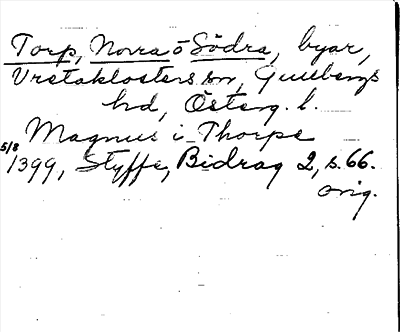 Torp, Norra o Södra, byar,
Vretaklosters sn, Gullbergs
hd, Österg. l.
Magnus i Thorpe
5/8 1399, Styffe, Bidrag 2, s. 66.
orig.